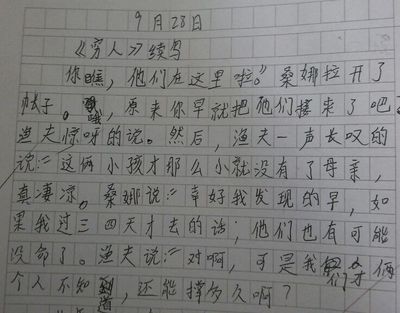 9月28日
《穷人》续写
你瞧,他们在这里啦。”桑娜拉开了
帐子。哦,原来你早就把他们接来了吧
渔夫惊呀的说。然后,渔夫一声长叹的
说:“这俩小孩才那么小就没有了母亲,
真凄凉。桑娜说:“幸好我发现的早,如
果我过三四天才去的话;他们也有可能
没命了。渔夫说:“对啊,可是我们才俩
个人不知道,还能撑多久啊?